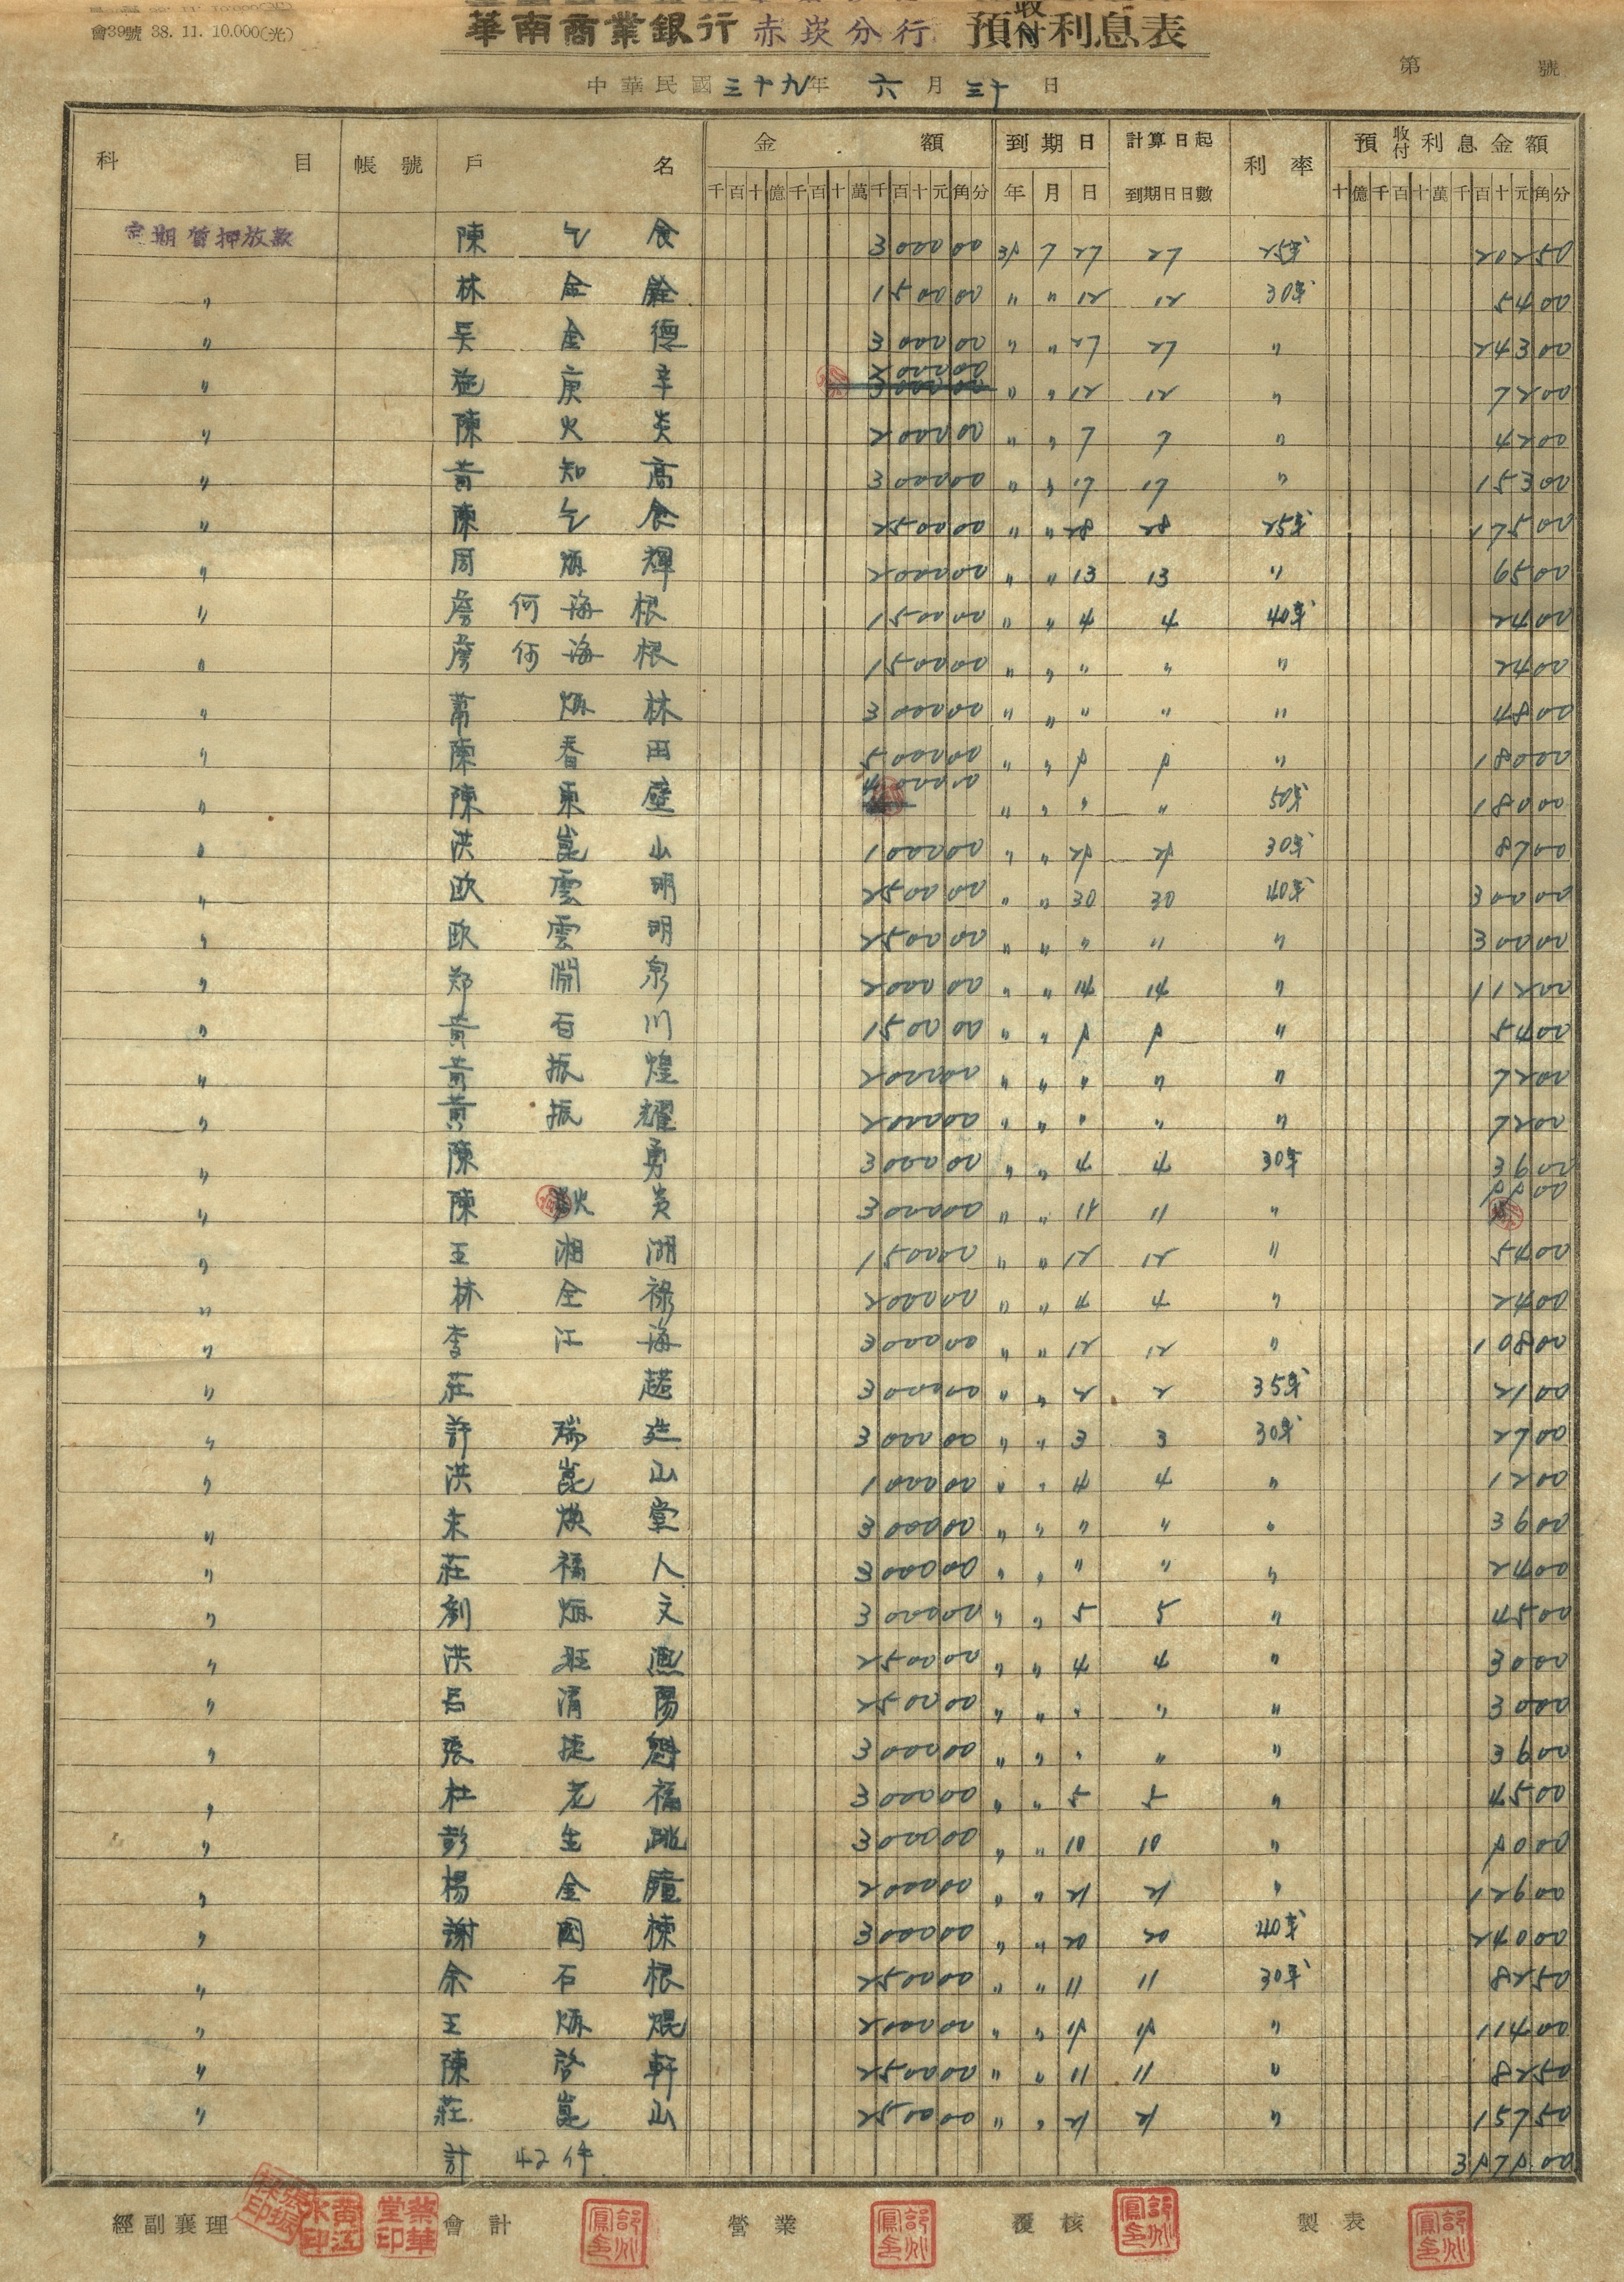 會39號 38. 11. 10.000(光)
華南商業銀行 赤崁分行 預收付利息表
中華民國三十九年 六月三十日
第 號
科目 帳號 戶名 金額 到期日 計算日起到期日日數 利率 預收付利息金額
千百十億千百十萬千百十元角分 年 月 日 十億千百十萬千百十元角分
定期質押放款 陳乞食 3000 00 39 7 27 27 25% 202 50
〃 林金銓 1500 00 〃 〃 12 12 30% 54 00
〃 吴金德 3000 00 〃 〃 27 27 〃 243 00
〃 施庚辛 2000 00 〃 〃 12 12 〃 72 00
〃 陳火炎 2000 00 〃 〃 7 7 〃 42 00
〃 黃知高 3000 00 〃 〃 17 17 〃 153 00
〃 陳乞食 2500 00 〃 〃 28 28 25% 175 00
〃 周炳輝 2000 00 〃 〃 13 13 〃 65 00
〃 詹何海根 1500 00 〃 〃 4 4 40% 24 00
〃 詹何海根 1500 00 〃 〃 〃 〃 〃 24 00
〃 蕭炳林 3000 00 〃 〃 〃 〃 〃 48 00
〃 陳春田 5000 00 〃 〃 9 9 〃 180 00
〃 陳東壁 4000 00 〃 〃 〃 〃 50% 180 00
〃 洪崑山 1000 00 〃 〃 29 29 30% 87 00
〃 欧雲明 2500 00 〃 〃 30 30 40% 300 00
〃 欧雲明 2500 00 〃 〃 〃 〃 〃 300 00
〃 郑淵泉 2000 00 〃 〃 14 14 〃 112 00
〃 黃石川 1500 00 〃 〃 9 9 〃 54 00
〃 黃振煌 2000 00 〃 〃 〃 〃 〃 72 00
〃 黃振耀 2000 00 〃 〃 〃 〃 〃 72 00
〃 陳勇 3000 00 〃 〃 4 4 30% 36 00
〃 陳火炎 3000 00 〃 〃 11 11 〃 99 00
〃 王湘湖 1500 00 〃 〃 12 12 〃 54 00
〃 林全祿 2000 00 〃 〃 4 4 〃 24 00
〃 李江海 3000 00 〃 〃 12 12 〃 108 00
〃 莊趌 3000 00 〃 〃 2 2 35% 21 00
〃 許瑞廷 3000 00 〃 〃 3 3 30% 27 00
〃 洪崑山 1000 00 〃 〃 4 4 〃 12 00
〃 朱煥堂 3000 00 〃 〃 〃 〃 〃 36 00
〃 莊福人 3000 00 〃 〃 〃 〃 〃 24 00
〃 劉炳文 3000 00 〃 〃 5 5 〃 45 00
〃 洪旺 2500 00 〃 〃 4 4 〃 30 00
〃 呂清陽 2500 00 〃 〃 〃 〃 〃 30 00
〃 張捷魁 3000 00 〃 〃 〃 〃 〃 36 00
〃 杜老福 3000 00 〃 〃 5 5 〃 45 00
〃 彭生跳 3000 00 〃 〃 10 10 〃 90 00
〃 楊金 2000 00 〃 〃 21 21 〃 126 00
〃 謝國棟 3000 00 〃 〃 20 20 40% 240 00
〃 余石根 2500 00 〃 〃 11 11 30% 82 50
〃 王炳焜 2000 00 〃 〃 19 19 〃 114 00
〃 陳啓軒 2500 00 〃 〃 11 11 〃 82 50
〃 莊崑山 2500 00 〃 〃 21 21 〃 157 50
計 42件 3979 00
經副襄理 會計 營業 覆核 製表